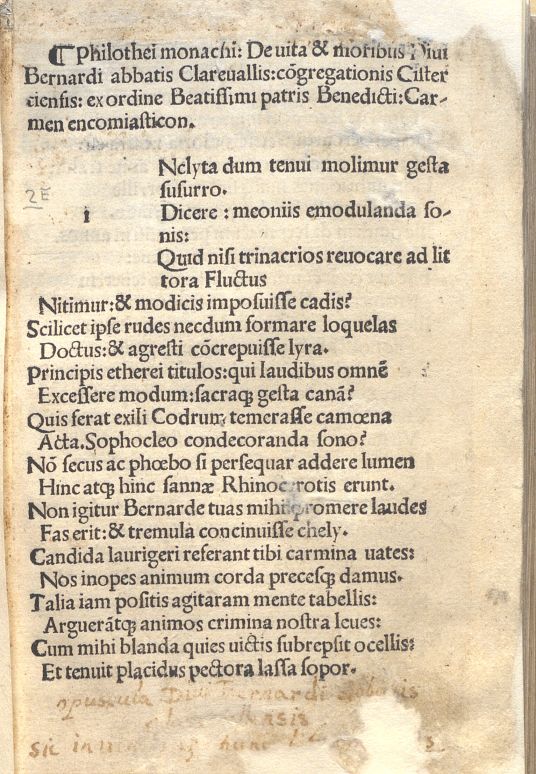 ¶ Philothei monachi: De uita & moribus Diui
Bernardi abbatis Clareuallis: cōgregationis Cister
ciensis: ex ordine Beatissimi patris Benedicti: Car-
men encomiasticon.
Nclyta dum tenui molimur gesta
susurro.
2E
i
Dicere: meoniis emodulanda so-
nis:
Quid nisi trinacrios reuocare ad lit
tora Fluctus
Nitimur: & modicis imposuisse cadis?
Scilicet ipse rudes necdum formare loquelas
Doctus: & agresti cōcrepuisse lyra.
Principis etherei titulos: qui laudibus omnē
Excessere modum: sacraqꝫ gesta canā?
Quis ferat exili Codrum temerasse camœna
Acta. Sophocleo condecoranda sono?
Nō secus ac phœbo si persequar addere lumen
Hinc atqꝫ hinc sannæ Rhinocerotis erunt.
Non igitur Bernarde tuas mihi promere laudes
Fas erit: & tremula concinuisse chely.
Candida laurigeri referant tibi carmina uates:
Nos inopes animum corda precesqꝫ damus.
Talia iam positis agitaram mente tabellis:
Arguerātqꝫ animos crimina nostra leues:
Cum mihi blanda quies uictis subrepsit ocellis:
Et tenuit placidus pectora lassa sopor.
opuscula Diui Bernardi abbatis
sic in